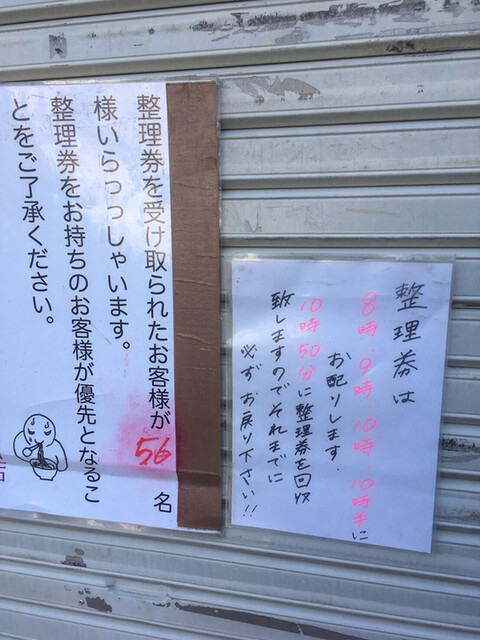 整理券を受け取られたお客様が56名
様いらっっしゃいます。
整理券をお持ちのお客様が優先となるこ
とをご了承ください。
整理券は
8時.9時.10時.10時半に
お配りします.
10時50分に整理券を回収
致しますのでそれまでに
必ずお戻り下さい!!